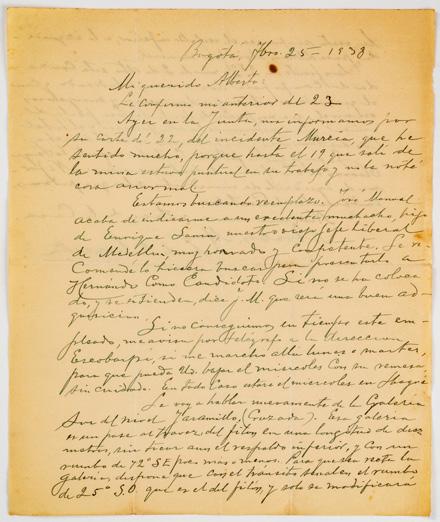 Bogota, Fbro. 25 - 1938
Mi querido Alberto:
Le confirmo mi anterior del 23
Ayer en la Junta, nos informamos por
su carta del 22, del incidente Murcia, que he
sentido mucho, porque hasta el 19 que salí de
la mina estuvo puntual en su trabajo y no le noté
cosa anormal
Estamos buscando reemplazo. José Manuel
acaba de indicarme a un excelente muchacho, hijo
de Enrique nuestro viejo jefe liberal
de Medellin, muy honrado y Competente. Le re-
Comendé lo hiciera buscar para presentarlo a
Hernando Como Candidato. Si no se ha coloca-
do, y se entienden, dice J.M. que sera una buena ad-
quisicion.
Si no conseguimos en tiempo este em-
pleado, me avisa por telégrafo a la direccion
si me marcho alla lunes o martes,
para que pueda Ud. bajar el miercoles con su remesa
sin cuidado. En todo Caso estare el miercoles en Ibagué
Le voy a hablar nuevamente de la Galeria
Sur del nivel Jaramillo, (Cruzada). Esa galeria
es un pase al traves del filon en una longitud de diez
metros, sin tocar aun el respaldo inferior, y con un
rumbo de 72° SE poco mas o menos. Para que sea recta la
galeria, dispone que con el tránsito señalen el rumbo
de 25° S.O. que es el del filon, y solo se modificará